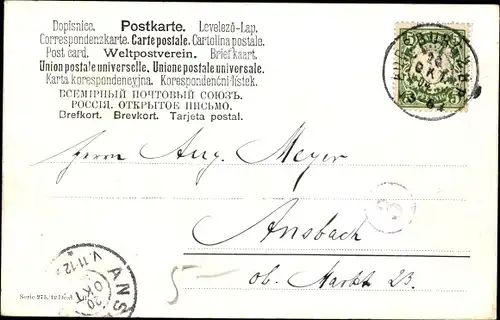 Dopisnice. Postkarte. Levelező-Lap.
Correspondenzkarte. Carte postale. Cartolina postale.
Post card. Weltpostverein. Briefkaart.
Union postale universelle. Unione postale universale.
Karta korespondencyjna. Korespondenční lístek.
ВСЕМІРНЫЙ ПОЧТОВЫЙ СОЮЗЪ.
РОССІЯ. ОТКРЫТОЕ ПИСЬМО.
Brefkort. Brevkort. Tarjeta postal.
OKT
Herrn Aug. Meyer
Ansbach
ob. Markt 23.
V.11-12
ANS
20
OKT
5-